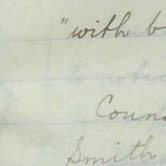 "with b
Coun
Smith